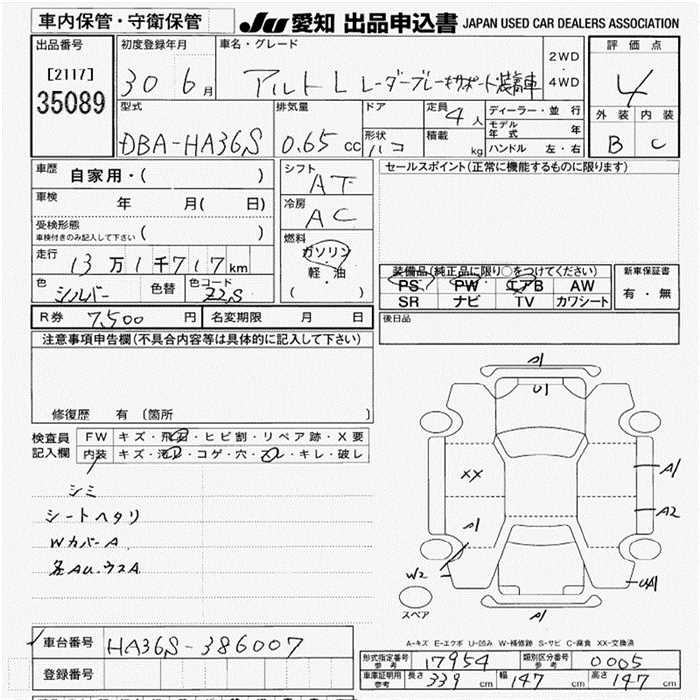 車内保管・守衛保管
JU 愛知 出品申込書 JAPAN USED CAR DEALERS ASSOCIATION
出品番号
[2117]
35089
初度登録年月
30 6月
車名・グレード
アルト L レーダーブレーキサポート装着車
2WD
4WD
評価点
4
外装 内装
B C
型式
DBA-HA36S
排気量
0.65 cc
ドア
形状
ハコ
定員 4人
積載 kg
ディーラー・並行
モデル年式 年
ハンドル 左・右
車歴 自家用・( )
車検 年 月( 日)
受検形態
車検付きのみ記入して下さい ( )
走行 13万1千717km
色 シルバー 色替 色コード Z2S
シフト
AT
冷房
AC
燃料
ガソリン
軽・油
( )
セールスポイント(正常に機能するものに限ります)
装備品(純正品に限り○をつけてください)
PS PW エアB AW
SR ナビ TV カワシート
新車保証書
有・無
R券 7,500 円 名変期限 月 日
後日品
注意事項申告欄(不具合内容等は具体的に記入して下さい)
修復歴 有 〔箇所 〕
検査員
記入欄
FW キズ・飛石・ヒビ割・リペア跡・X要
内装 キズ・汚レ・コゲ・穴・スレ・キレ・破レ
シミ
シートヘタリ
WカバーA
各AU.ウスA
A1
U1
XX
A1
A1
A2
W2
UA1
スペア
A1
A-キズ E-エクボ U-凹み W-補修跡 S-サビ C-腐食 XX-交換済
車台番号 HA36S-386007
登録番号
形式指定番号
参考
17954
類別区分番号
参考
0005
車庫証明用
参考
長さ 339 cm 幅 147 cm 高さ 147 cm